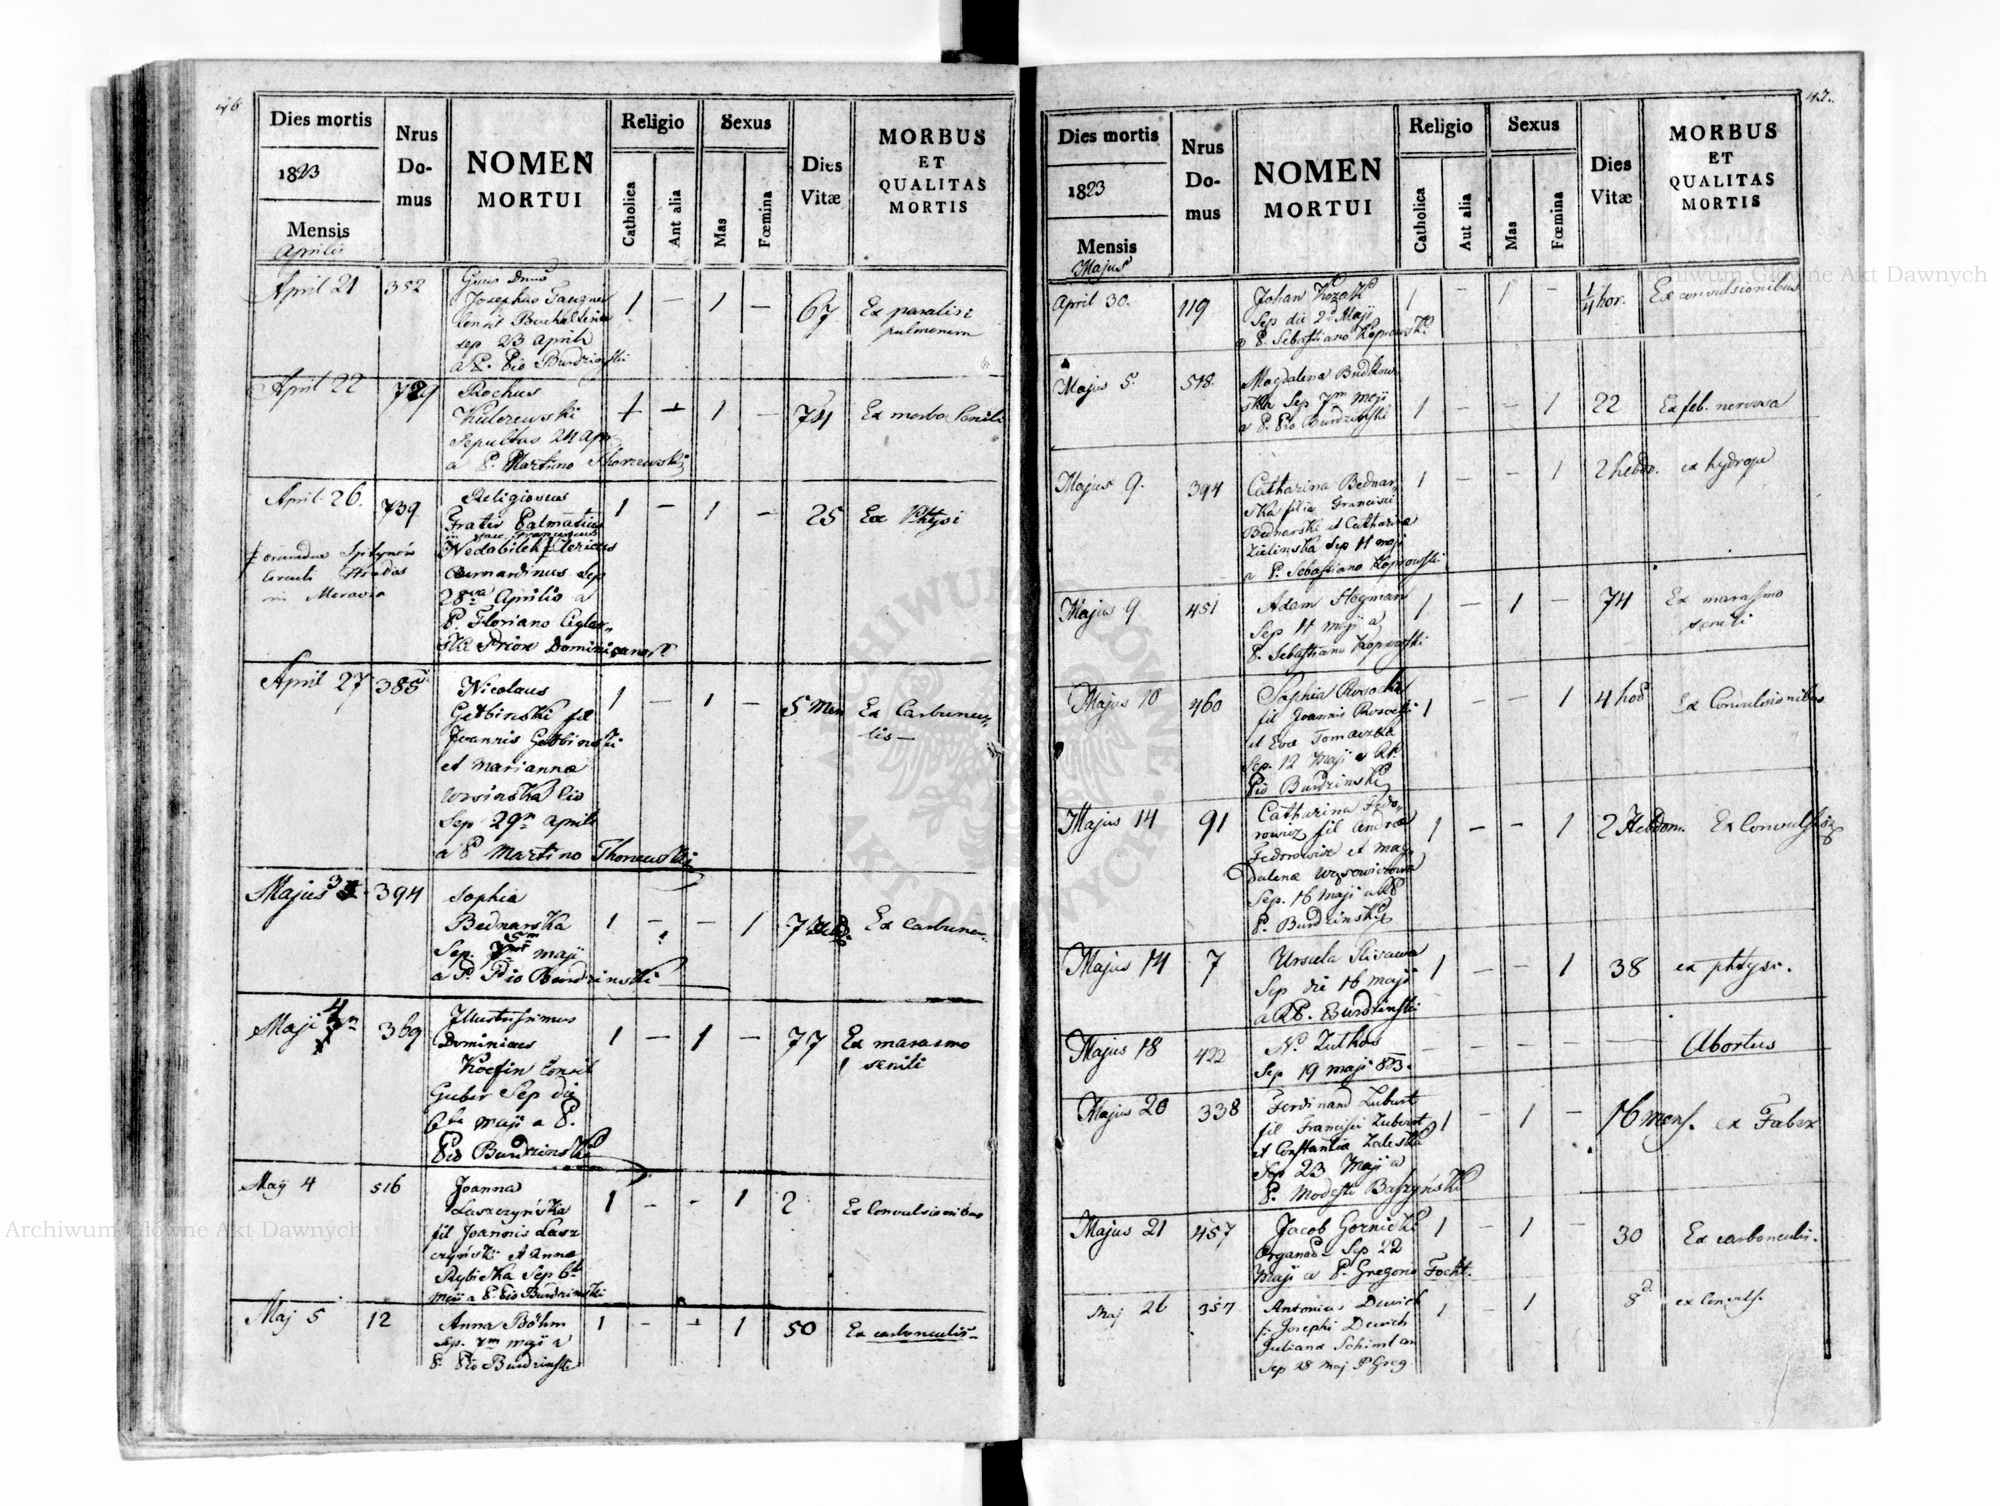 46
Dies mortis
1823
Mensis
Aprilis
Nrus
Do-
mus
NOMEN
MORTUI
Religio
Catholica
Aut alia
Sexus
Mas
Fœmina
Dies
Vitæ
MORBUS
ET
QUALITAS
MORTIS
April 21 352
Josephus
sep 23 aprilis
a P. Pio Burdzinski
1 — 1 — 67 Ex paralisi
pulmonum
April 22 729 Rochus
Kulczewski
Sepultus 24 apr
a P. Martino Thorzewski
1 — 74 Ex morbo senili
April 26. 739 Religiosus
Frater Palmatius
Nedabilek Clericus
Bernardinus sep
28va Aprilis a
P. Floriano
Prior Dominicanor
in Moravia
1 — 1 — 25 Ex Phtysi
April 27 385 Nicolaus
Getbinski fil
Joannis Getbinski
et Marianna
Ursinska
Sep 29 Aprilis
a P Martino Thorzewski
1 — 1 — 5 Men Ex Carbuncu-
lis—
Majus 3 394 Sophia
Bednarska
Sep. 5m maji
a P. Pio Burdzinski
1 — — 1 7 Hebd. Ex carbunc.
Maji 4 369 Illustrissimus
Dominicus
Koefin Consil
Guber Sep die
6ta maji a P.
Pio Burdzinski
1 — 1 — 77 Ex marasmo
senili
Maij 4 516 Joanna
Laszczyńska
fil Joannis Lasz
czyński et Anna
Rybicka Sep 6t
maii a P. Pio Burdzinski
1 — — 1 2 Ex Convulsionibus
Maj 5 12 Anna Böhm
Sep. 7m maji a
P. Pio Burdzinski
1 — — 1 50 Ex carbonculis—
47.
Dies mortis
1823
Mensis
Majus
Nrus
Do-
mus
NOMEN
MORTUI
Religio
Catholica
Aut alia
Sexus
Mas
Fœmina
Dies
Vitæ
MORBUS
ET
QUALITAS
MORTIS
April 30. 119 Johan Kozak
Sep die 2 Maji
a P. Sebastiano Koprowski
1 — 1 — 1/4 hor. Ex convulsionibus
Majus 5. 518. Magdalena Budkow
ska Sep 7m maji
a P. Pio Burdzinski
1 — — 1 22 Ex feb. nervosa
Majus 9. 394 Catharina Bednar-
ska filia Francisci
Bednarski et Catharina
Zielinska sep 11 maji
a P. Sebastiano Koprowski
1 — — 1 2 hebdo. ex hydrope
Majus 9 451 Adam Stegman
Sep 11 maji a
P. Sebastiano Koprowski
1 — 1 — 74 Ex marasmo
senili
Majus 10 460 Sophia
fil Joannis
et Eva Tomaczka
Sep. 12 Maji a
Pio Burdzinski
1 — — 1 4 Ex Convulsionibus
Majus 14 91 Catharina Fedo-
rowicz fil Andreæ
Fedorowicz et Mag-
dalenæ Wąsowiczowna
Sep. 16 maji a RP
P. Burdzinski
1 — — 1 2 Hebdom. Ex Convulsis
Majus 14 7 Ursula
Sep die 16 maji
a RP. Burdzinski
1 — — 1 38 ex phtysi.
Majus 18 422 N. Luthos
Sep 19 maji 823.
— — — — — Abortus
Majus 20 338 Ferdinand Lubert
fil Francisci Lubert
et Constantia Zaleska
Sep 23 Maji a
P. Modesti Baszyński
1 — 1 — 16 mens. ex Faber
Majus 21 457 Jacob Gornicki
Organo- Sep 22
Maji a P. Gregorio Focht.
1 — 1 — 30 Ex carbonculis.
Maj 26 357 Antonius Dewich
f: Josephi Dewich
Juliana Schimlan
Sep 28 maj P Greg
1 — 1 8 d ex Convuls.
Archiwum Główne Akt Dawnych
Archiwum Główne Akt Dawnych
ARCHIWUM GŁÓWNE AKT DAWNYCH